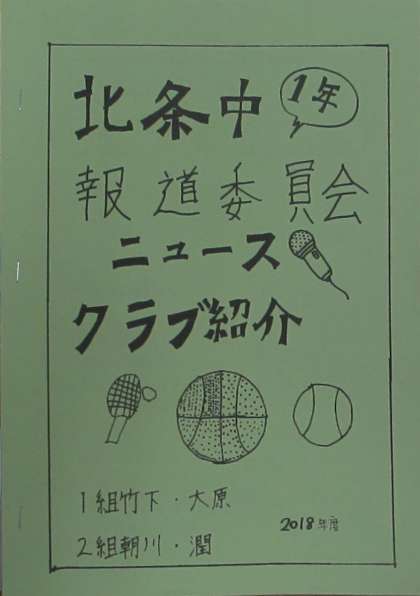 北条中
1年
報道委員会
ニュース
クラブ紹介
1組竹下・大原
2組朝川・潤
2018年度